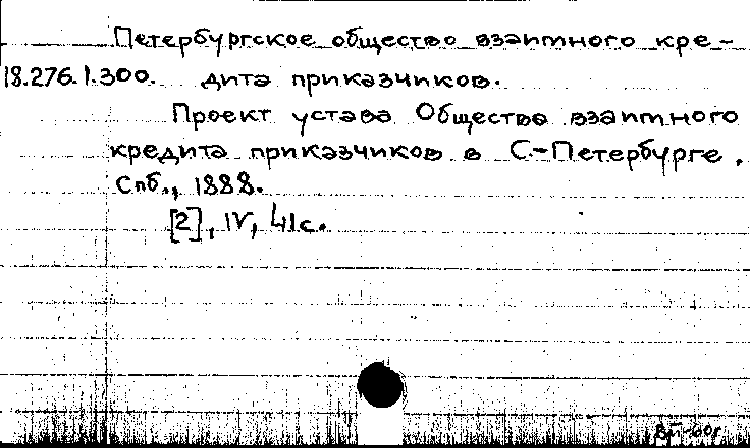 Петербургское общество взаимного кре-
18.276.1.300. дита приказчиков.
Проект устава Общества взаимного
кредита приказчиков в С.-Петербурге.
Спб., 1888.
[2], IV, 41 с.